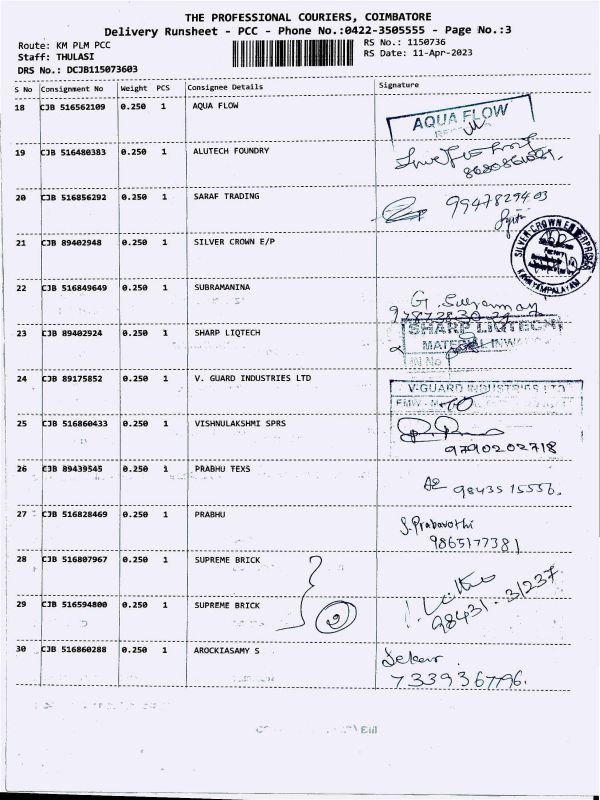 THE PROFESSIONAL COURIERS, COIMBATORE
Delivery Runsheet - PCC - Phone No.:0422-3505555 - Page No.:3
Route: KM PLM PCC
RS No.: 1150736
Staff: THULASI
RS Date: 11-Apr-2023
DRS No.: DCJB115073603
S No Consignment No Weight PCS Consignee Details Signature
18 CJB 516562109 0.250 1 AQUA FLOW
AQUA FLOW
19 CJB 516480383 0.250 1 ALUTECH FOUNDRY
20 CJB 516856292 0.250 1 SARAF TRADING
9947829403
21 CJB 89402948 0.250 1 SILVER CROWN E/P
SILVER CROWN ENTERPRISES
22 CJB 516849649 0.250 1 SUBRAMANINA
23 CJB 89402924 0.250 1 SHARP LIQTECH
SHARP LIQTECH
MATERIAL INWA
24 CJB 89175852 0.250 1 V. GUARD INDUSTRIES LTD
V-GUARD INDUSTRIES LTD
25 CJB 516860433 0.250 1 VISHNULAKSHMI SPRS
9790202718
26 CJB 89439545 0.250 1 PRABHU TEXS
9843515556.
27 CJB 516828469 0.250 1 PRABHU
S. Prabavathi
9865177381
28 CJB 516807967 0.250 1 SUPREME BRICK
29 CJB 516594800 0.250 1 SUPREME BRICK
2
98431-31237
30 CJB 516860288 0.250 1 AROCKIASAMY S
Sekar
7339367796.